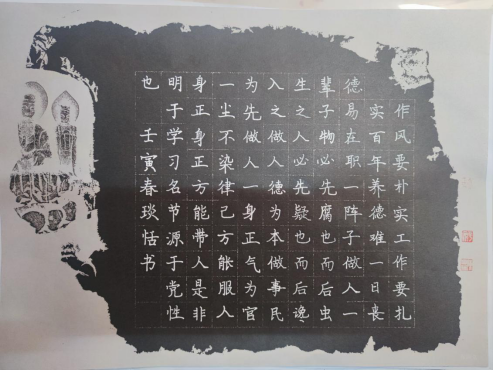 作风要朴实工作要扎
实百年养德难一日丧
德易在职一阵子做人一
辈子物必先腐也而后虫
生之人必先疑也而后谗
入之做人德为本做事民
为先做人一身正气为官
一尘不染律己方能服人
身正身正方能带人是非
明于学习名节源于党性
也 壬寅春琰恬书